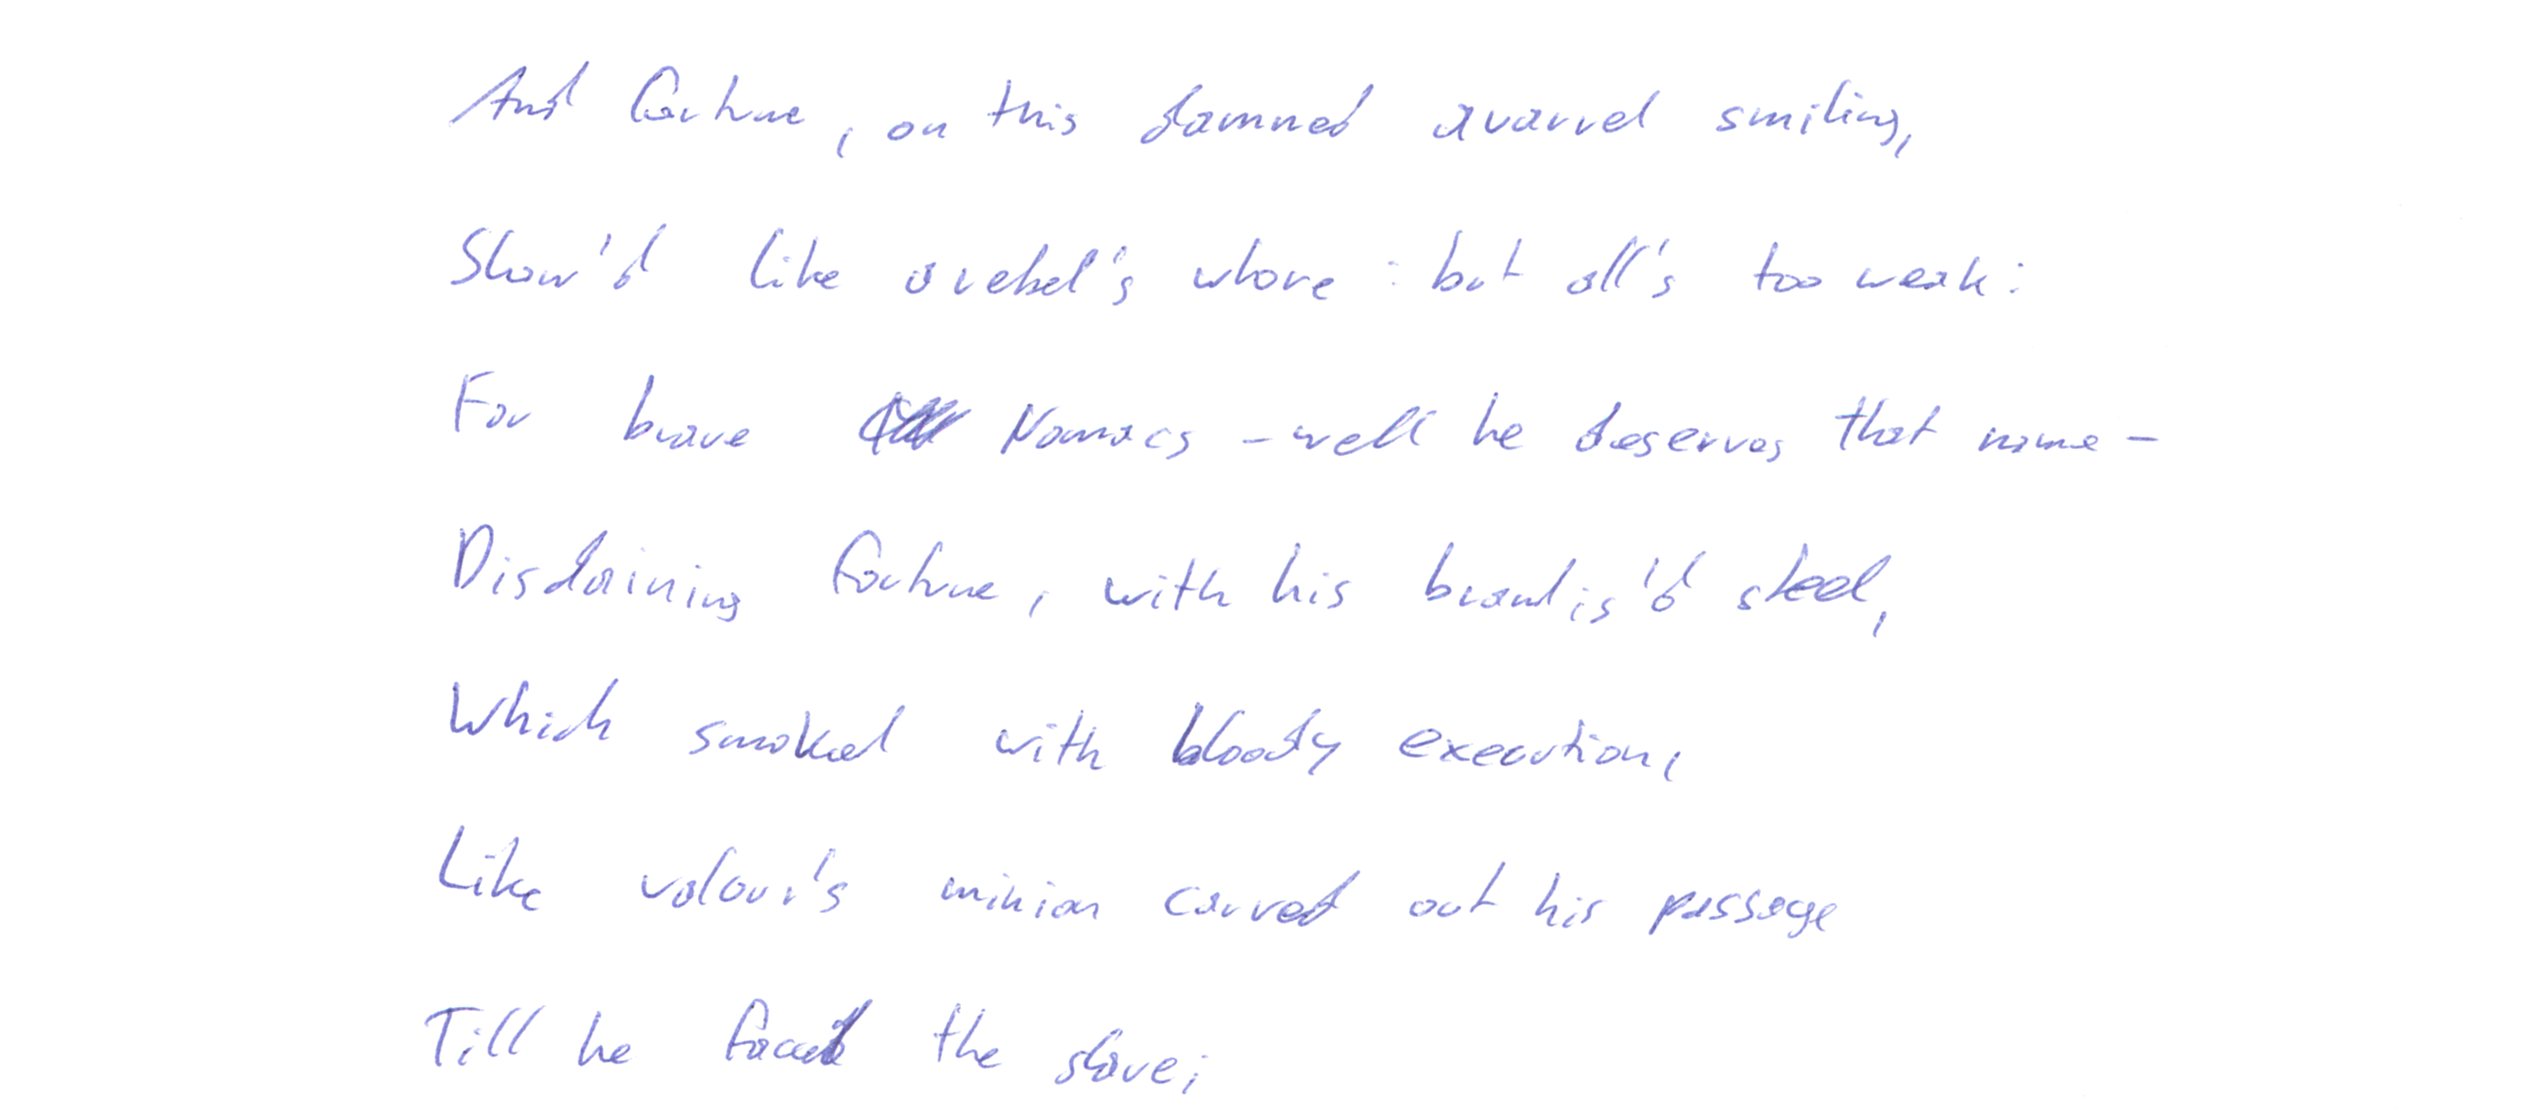 And fortune, on this damned quarrel smiling,
Show'd like a rebel's whore: but all's too weak:
For brave Nomacs - well he deserves that name -
Disdaining fortune, with his brandis'd steel,
Which smoked with bloody execution,
Like valour's minion carved out his passage
Till he faced the slave;